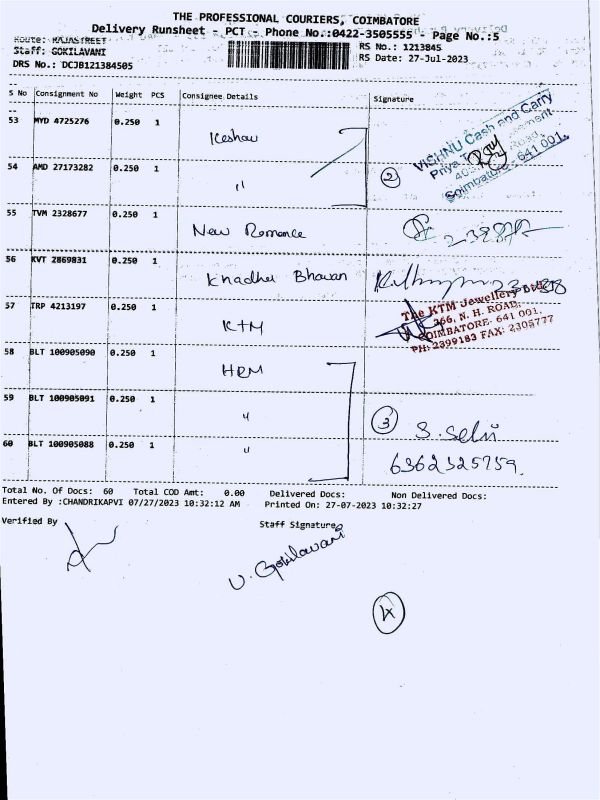 THE PROFESSIONAL COURIERS, COIMBATORE
Delivery Runsheet - PCT - Phone No.:0422-3505555 - Page No.:5
Route: RAJASTREET
RS No.: 1213845
Staff: GOKILAVANI
RS Date: 27-Jul-2023
DRS No.: DCJB121384505
S No Consignment No Weight PCS Consignee Details Signature
53 MYD 4725276 0.250 1 Keshav
VISHNU Cash and Carry
Priya
Road,
Coimbatore - 641 001.
54 AMD 27173282 0.250 1 "
2
55 TVM 2328677 0.250 1 New Romance
56 KVT 2869831 0.250 1 Khadhi Bhavan
57 TRP 4213197 0.250 1 KTM
The KTM Jewellery Ltd.
366, N. H. ROAD,
COIMBATORE. 641 001.
PH: 2399183 FAX: 2305777
58 BLT 100905090 0.250 1 HRM
59 BLT 100905091 0.250 1 "
3 S. Selvi
60 BLT 100905088 0.250 1 "
6362325759.
Total No. Of Docs: 60 Total COD Amt: 0.00 Delivered Docs: Non Delivered Docs:
Entered By :CHANDRIKAPVI 07/27/2023 10:32:12 AM Printed On: 27-07-2023 10:32:27
Verified By Staff Signature
V. Gokilavani